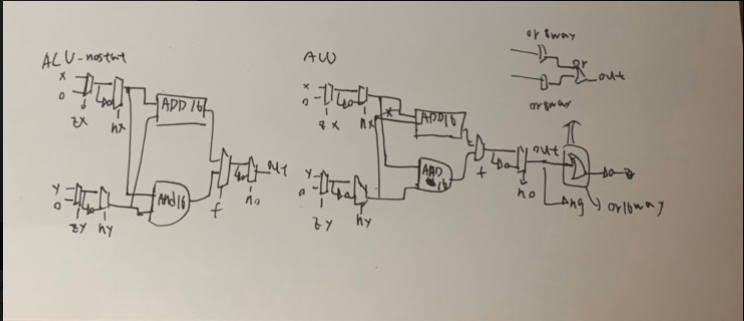 ALU-nostat
x
0
zx
nx
ADD16
y
0
zy
ny
And16
f
no
out
ALU
x
0
zx
nx
ADD16
y
0
zy
ny
AND
16
f
no
out
ng
or16way
or8way
or
out
or8way